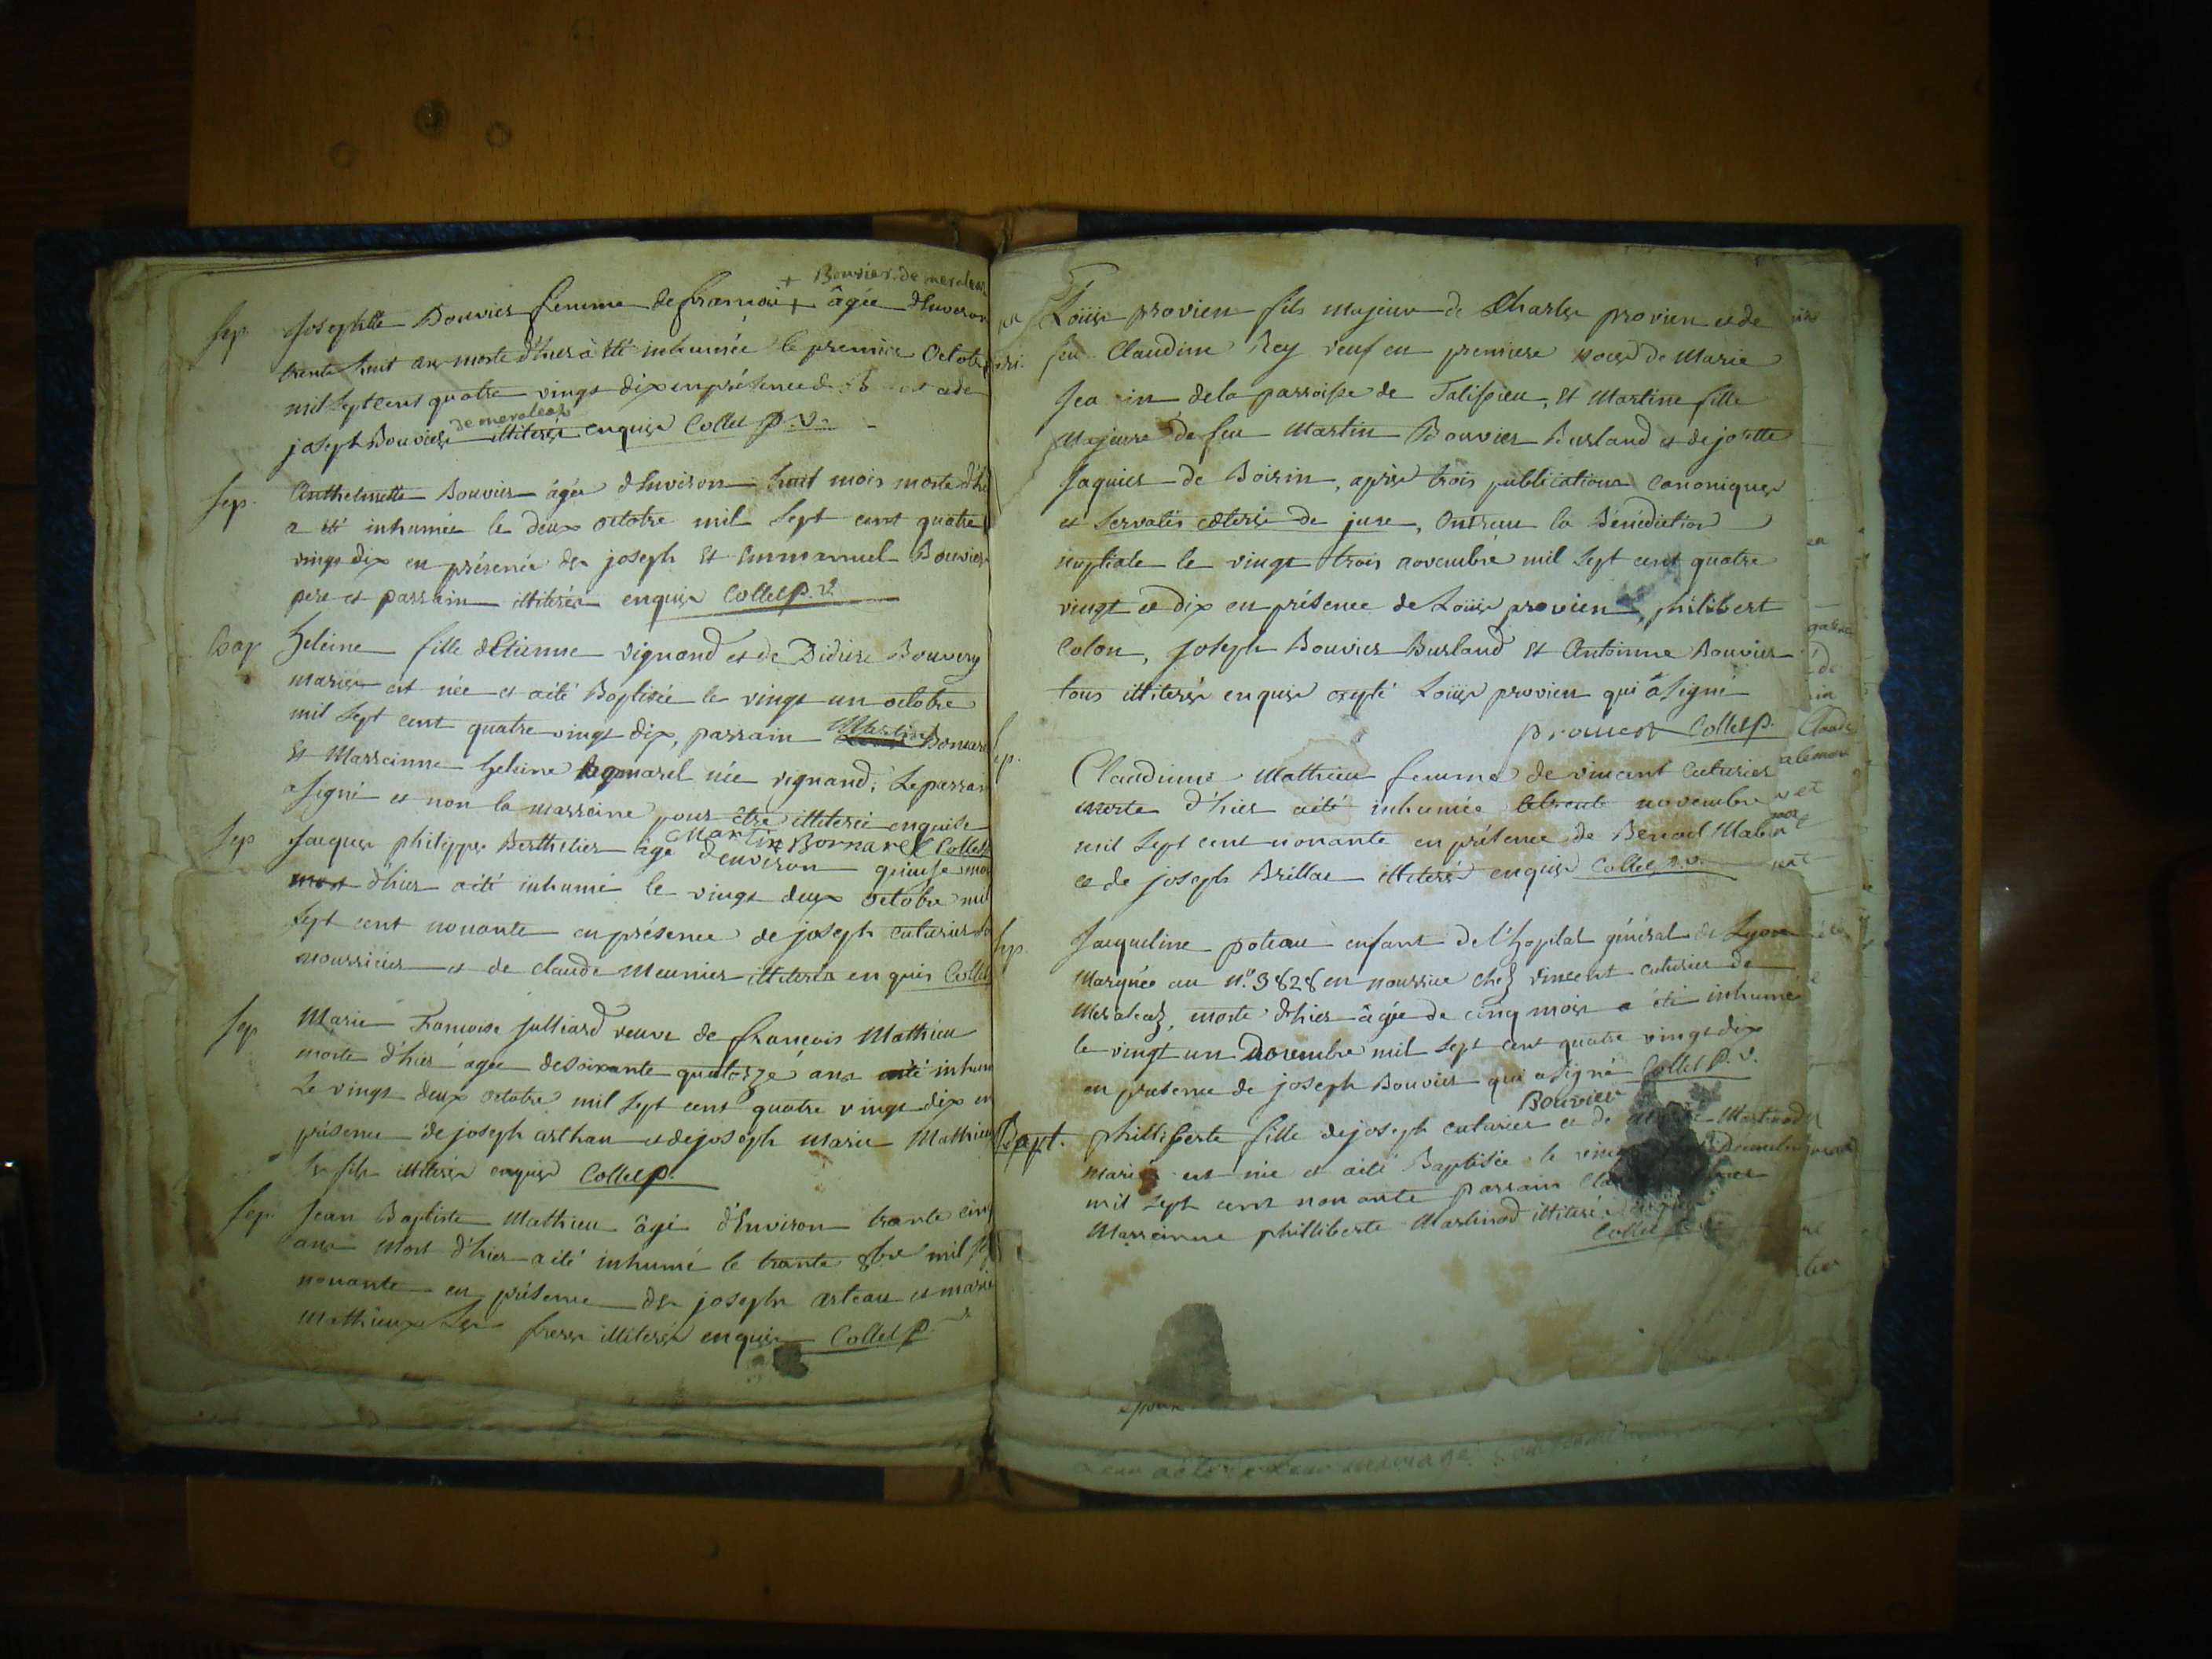 + Bouvier de meraleaz
Sep. Josephte Bouvier femme de francois + âgée d'Environ
trente huit ans morte d'hier à été inhumée le premier Octobre
mil Sept cent quatre vingt dix en présence de et de
de meraleaz
joseph Bouvier illiterés enquis Collet P. V.
Sep. Anthelmette Bouvier âgée d'Environ huit mois morte d'hier
a été inhumée le deux octobre mil Sept cent quatre
vingt dix en présence de joseph Et Emmanuel Bouvier
pere et parrain illiterés enquis Collet P. V.
Bap heleine fille d'Etienne vignand et de Didiere Bouvery
mariés est née et a été Baptisée le vingt un octobre
mil Sept cent quatre vingt dix, parrain Martin Bornarel
Et Marrainne heleine née vignand, Le parrain
a signé et non la marraine pour être illiterée enquise
Martin Bornarel Collet
Sep Jacques philippe Berthelier âgé d'environ quinse mois
mort d'hier a été inhumé le vingt deux octobre mil
Sept cent nonante en présence de joseph cuturier
nourricier et de claude Meunier illiterés enquis Collet
Sep Marie Francoise julliard veuve de francois Mathieu
morte d'hier âgée de soixante quatorze ans a été inhumée
Le vingt deux octobre mil Sept cent quatre vingt dix en
présence de joseph arthau et de joseph marie Mathieu
fils illiterés enquis Collet p.
Sep. Jean Baptiste Mathieu âgé d'Environ trante cinq
ans mort d'hier a été inhumé le trante 8bre mil Sept
nonante en présence de joseph arteau et marie
mathieux Ses freres illiterés enquis Collet P.
Loüis provien fils majeur de Charles provien et de
feu Claudine Rey veuf en premiere noces de Marie
Jea in de la parroisse de Talissieu, Et Martine fille
majeure de feu Martin Bouvier Burland et de josette
Jaquier de Boirin, après trois publications canoniques
et Servatis cæteris de jure, Ont reçu la Bénédiction
nuptiale le vingt trois novembre mil Sept cent quatre
vingt et dix en présence de Loüis provien, philibert
Colon, joseph Bouvier Burland Et Antoinne Bouvier
tous illiterés enquis exepté Loüis provien qui a signé
Collet p.
Sep. Claudine Mathieu femme de vincent Cuturier
morte d'hier a été inhumée le trente novembre
mil Sept cent nonante en présence de Benoit
et de joseph Brillat illiterés enquis Collet P. V.
Sep. Jacqueline poteau enfant de l'hopital général de Lyon
Marquée au N° 3828 en nourrice chez vincent cuturier de
Meraleaz, morte d'hier âgée de cinq mois a été inhumé
le vingt un Novembre mil Sept cent quatre vingt dix
en présence de joseph Bouvier qui a signé Collet P. V.
Bouvier
Bapt. philliberte fille de joseph cuturier et de Martinod
mariés est née et a été Baptisée le Décembre
mil Sept cent nonante parrain
Marrainne philliberte Martinod illiterés
Collet